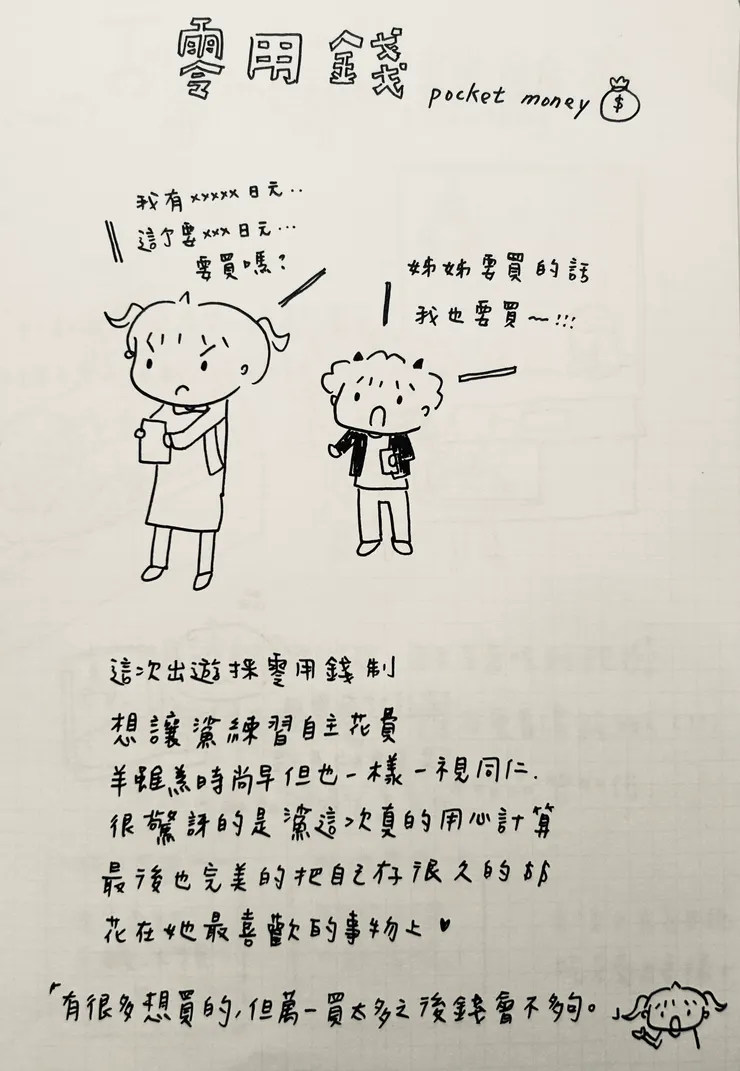 零用錢
pocket money $
我有xxxxx日元..
這個要xxx日元...
要買嗎?
姊姊要買的話
我也要買~!!!
這次出遊採零用錢制
想讓鯊練習自主花費
羊雖為時尚早但也一樣一視同仁.
很驚訝的是鯊這次真的用心計算
最後也完美的把自己存很久的$$
花在她最喜歡的事物上♥
「有很多想買的,但萬一買太多之後錢會不多句。」